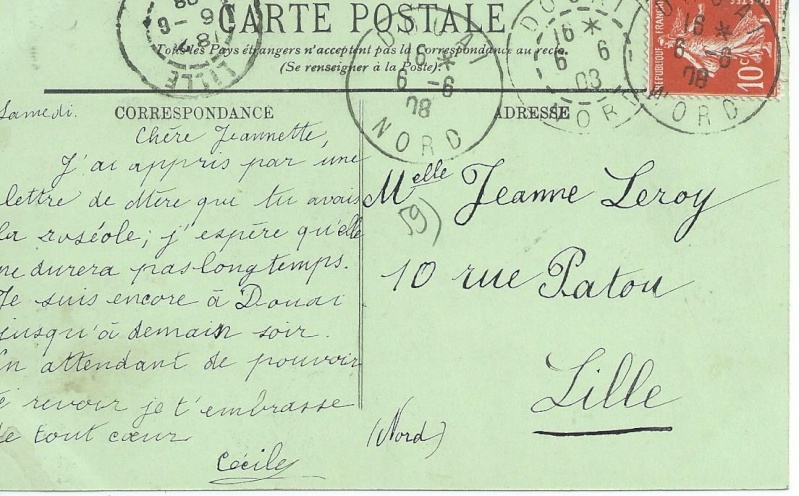 CARTE POSTALE
Tous les Pays étrangers n'acceptent pas la Correspondance au recto.
(Se renseigner à la Poste).
LILLE
DOUAI
NORD
16 *
6-6
08
DOUAI
NORD
16 *
6 6
DOUAI
NORD
16 *
6 6
08
RÉPUBLIQUE FRANÇAISE
POSTES
10c
CORRESPONDANCE
ADRESSE
Samedi.
Chère Jeannette,
J'ai appris par une
lettre de Mère que tu avais
la roséole; j'espère qu'elle
ne durera pas longtemps.
Je suis encore à Douai
jusqu'à demain soir.
En attendant de pouvoir
te revoir je t'embrasse
de tout cœur
Cécile
Melle Jeanne Leroy
59
10 rue Patou
Lille
(Nord)